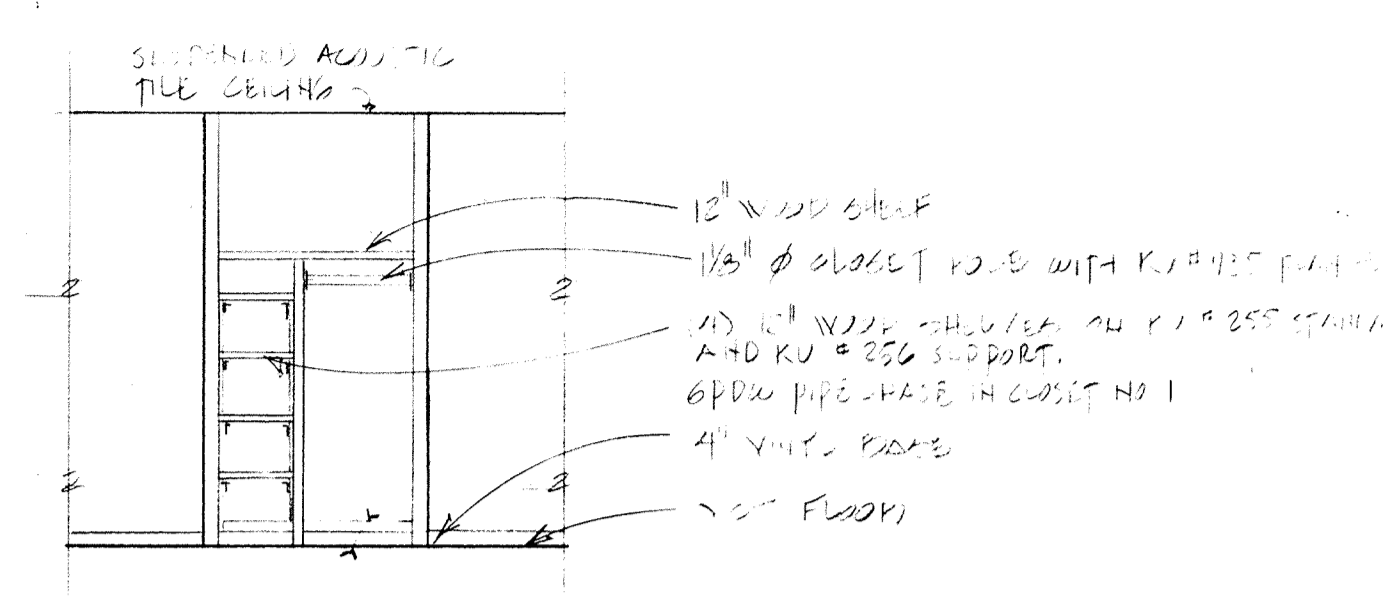 SUSPENDED ACOUSTIC
TILE CEILING
12" WOOD SHELF
1 1/8" Ø CLOSET POLE WITH KV #
(4) 12" WOOD SHELVES ON KV # 255
AND KV # 256 SUPPORT.
PIPE CHASE IN CLOSET NO 1
4" VINYL BASE
FLOOR
2
2
2
2